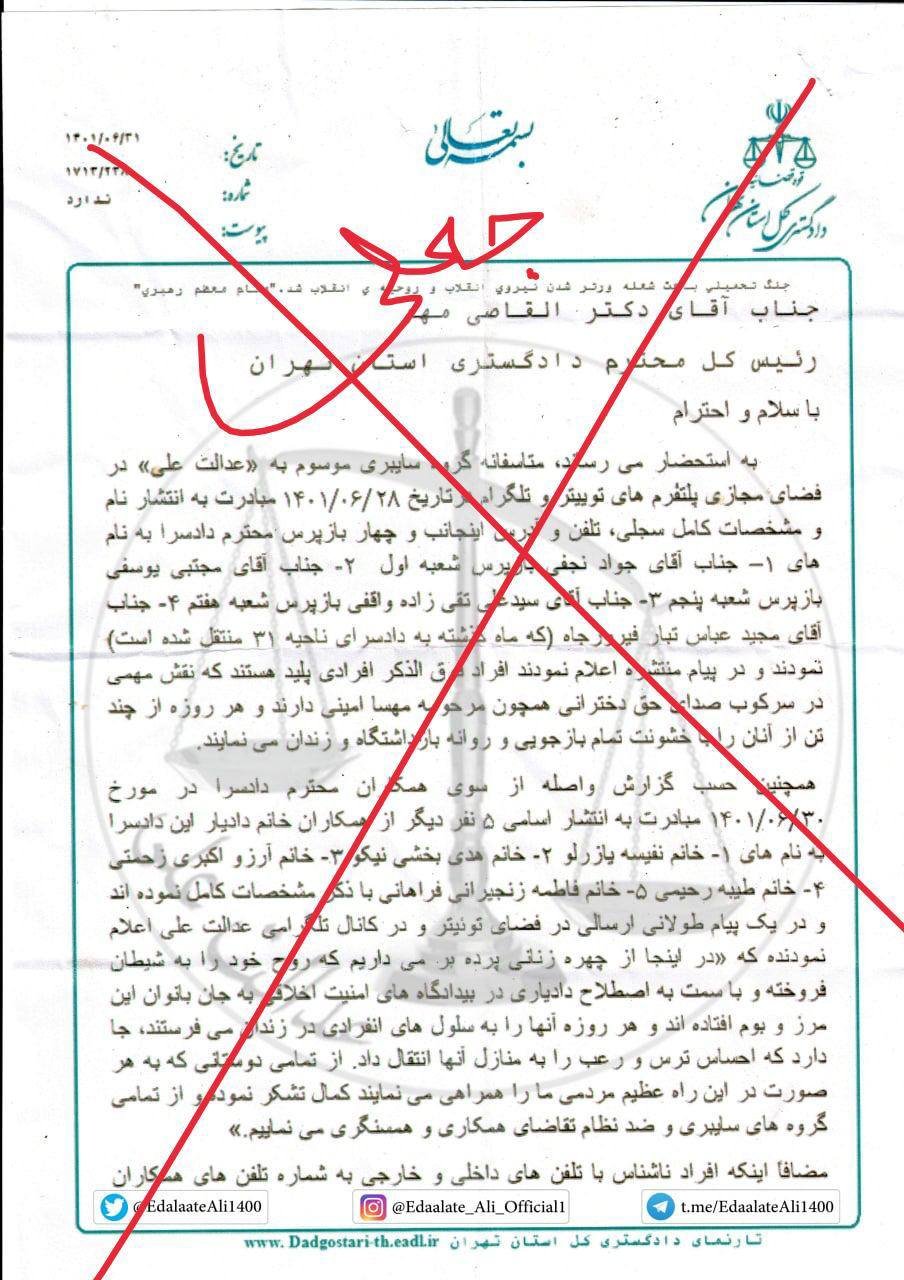 بسمه تعالی
قوه قضائیه
دادگستری کل استان تهران
تاریخ: ۱۴۰۱/۰۶/۳۱
شماره:
پیوست: ندارد
جعلی
جنگ تحمیلی شعله ورتر شدن نیروی انقلاب و روحیه ی انقلاب شد."مقام معظم رهبری"
جناب آقای دکتر القاصی
رئیس کل محترم دادگستری استان تهران
با سلام و احترام
به استحضار می رساند، متاسفانه گروه سایبری موسوم به «عدالت علی» در
فضای مجازی پلتفرم های توییتر و تلگرام درتاریخ ۱۴۰۱/۰۶/۲۸ مبادرت به انتشار نام
و مشخصات کامل سجلی، تلفن و آدرس اینجانب و چهار بازپرس محترم دادسرا به نام
های ۱– جناب آقای جواد نجفی بازپرس شعبه اول ۲- جناب آقای مجتبی یوسفی
بازپرس شعبه پنجم ۳- جناب آقای سیدعلی تقی زاده واقفی بازپرس شعبه هفتم ۴- جناب
آقای مجید عباس تبار فیروزجاه (که ماه گذشته به دادسرای ناحیه ۳۱ منتقل شده است)
نمودند و در پیام منتشره اعلام نمودند افراد فوق الذکر افرادی پلید هستند که نقش مهمی
در سرکوب صدای حق دخترانی همچون مرحومه مهسا امینی دارند و هر روزه از چند
تن از آنان را با خشونت تمام بازجویی و روانه بازداشتگاه و زندان می نمایند.
همچنین حسب گزارش واصله از سوی همکاران محترم دادسرا در مورخ
۱۴۰۱/۰۶/۳۰ مبادرت به انتشار اسامی ۵ نفر دیگر از همکاران خانم دادیار این دادسرا
به نام های ۱- خانم نفیسه یازرلو ۲- خانم هدی بخشی نیکو ۳- خانم آرزو اکبری زحمتی
۴- خانم طیبه رحیمی ۵- خانم فاطمه زنجیرانی فراهانی با ذکر مشخصات کامل نموده اند
و در یک پیام طولانی ارسالی در فضای توئیتر و در کانال تلگرامی عدالت علی اعلام
نمودنده که «در اینجا از چهره زنانی پرده بر می داریم که روح خود را به شیطان
فروخته و با سمت به اصطلاح دادیاری در بیدادگاه های امنیت اخلاقی به جان بانوان این
مرز و بوم افتاده اند و هر روزه آنها را به سلول های انفرادی در زندان می فرستند، جا
دارد که احساس ترس و رعب را به منازل آنها انتقال داد. از تمامی دوستانی که به هر
صورت در این راه عظیم مردمی ما را همراهی می نمایند کمال تشکر نموده و از تمامی
گروه های سایبری و ضد نظام تقاضای همکاری و همسنگری می نماییم.»
مضافاً اینکه افراد ناشناس با تلفن های داخلی و خارجی به شماره تلفن های همکاران
@EdalaateAli1400
@Edaalate_Ali_Official1
t.me/EdaalateAli1400
تارنمای دادگستری کل استان تهران www. Dadgostari-th.eadl.ir